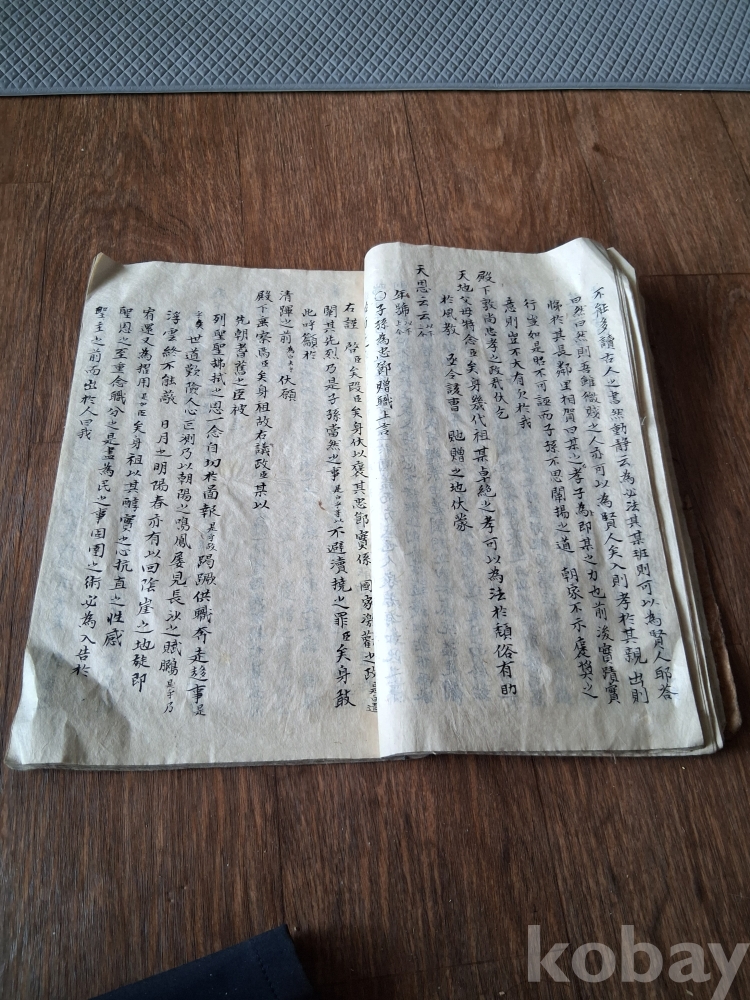 不能多讀古人之書然動靜云為必法其某班則可以為賢人耶答
曰然曰然則吾雖微賤之人亦可以為賢人矣入則孝於其親出則
悌於其長鄰里相賀曰某之孝子為即某之力也前後實蹟實
行昱如是昭不可誣而子孫不思闡揚之道 朝家不示褒獎之
意則豈不大有欠於我
殿下敦尚忠孝之政哉伏乞
天地父母特念臣矣身幾代祖某卓絶之孝可以為法於頹俗有助
於風教 亟令該曹 貤贈之地伏蒙
天恩云云
年號
子孫為忠節贈職上言
右謹 啓臣矣段臣矣身伏以褒其忠節實係 國家激勸之政是白遣
闡其先烈乃是子孫當然之事是白乎等以不避瀆撓之罪臣矣身敢
此呼籲於
清蹕之前為白去乎伏願
殿下垂察焉臣矣身祖故右議政臣某以
先朝耆舊之臣被
列聖聖拂拭之恩一念自切於圖報是乎所蹋蹶供職奔走趍事是
乎矣世道歎險人心叵測乃以朝陽之鳴鳳屢見長沙之賦鵩是乎乃
浮雲終不能蔽 日月之明陽春亦有以回陰崖之地旋即
宥還又為擢用是白乎臣矣身祖以其醇實之心抗直之性感
聖恩之至重念職分之是盡為民之事固圉之術必為入告於
聖主之前而出於人曰我
kobay